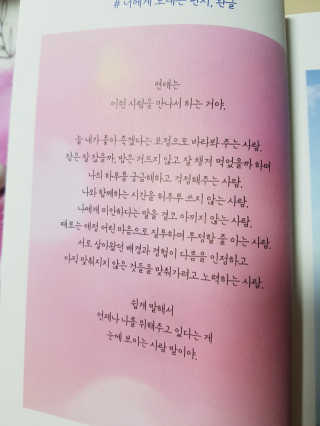 #너에게 보내는 편지, 한글
연애는
이런 사람을 만나서 하는 거야.
늘 내가 좋아 죽겠다는 표정으로 바라봐 주는 사람.
잠은 잘 잤을까, 밥은 거르지 않고 잘 챙겨 먹었을까 하며
나의 하루를 궁금해하고 걱정해주는 사람.
나와 함께하는 시간을 허투루 쓰지 않는 사람.
나에게 미안하다는 말을 결코 아끼지 않는 사람.
때로는 애정 어린 마음으로 질투하며 투정할 줄 아는 사람.
서로 살아왔던 배경과 경험이 다름을 인정하고
아직 맞춰지지 않은 것들을 맞춰가려고 노력하는 사람.
쉽게 말해서
언제나 나를 위해주고 있다는 게
눈에 보이는 사람 말이야.